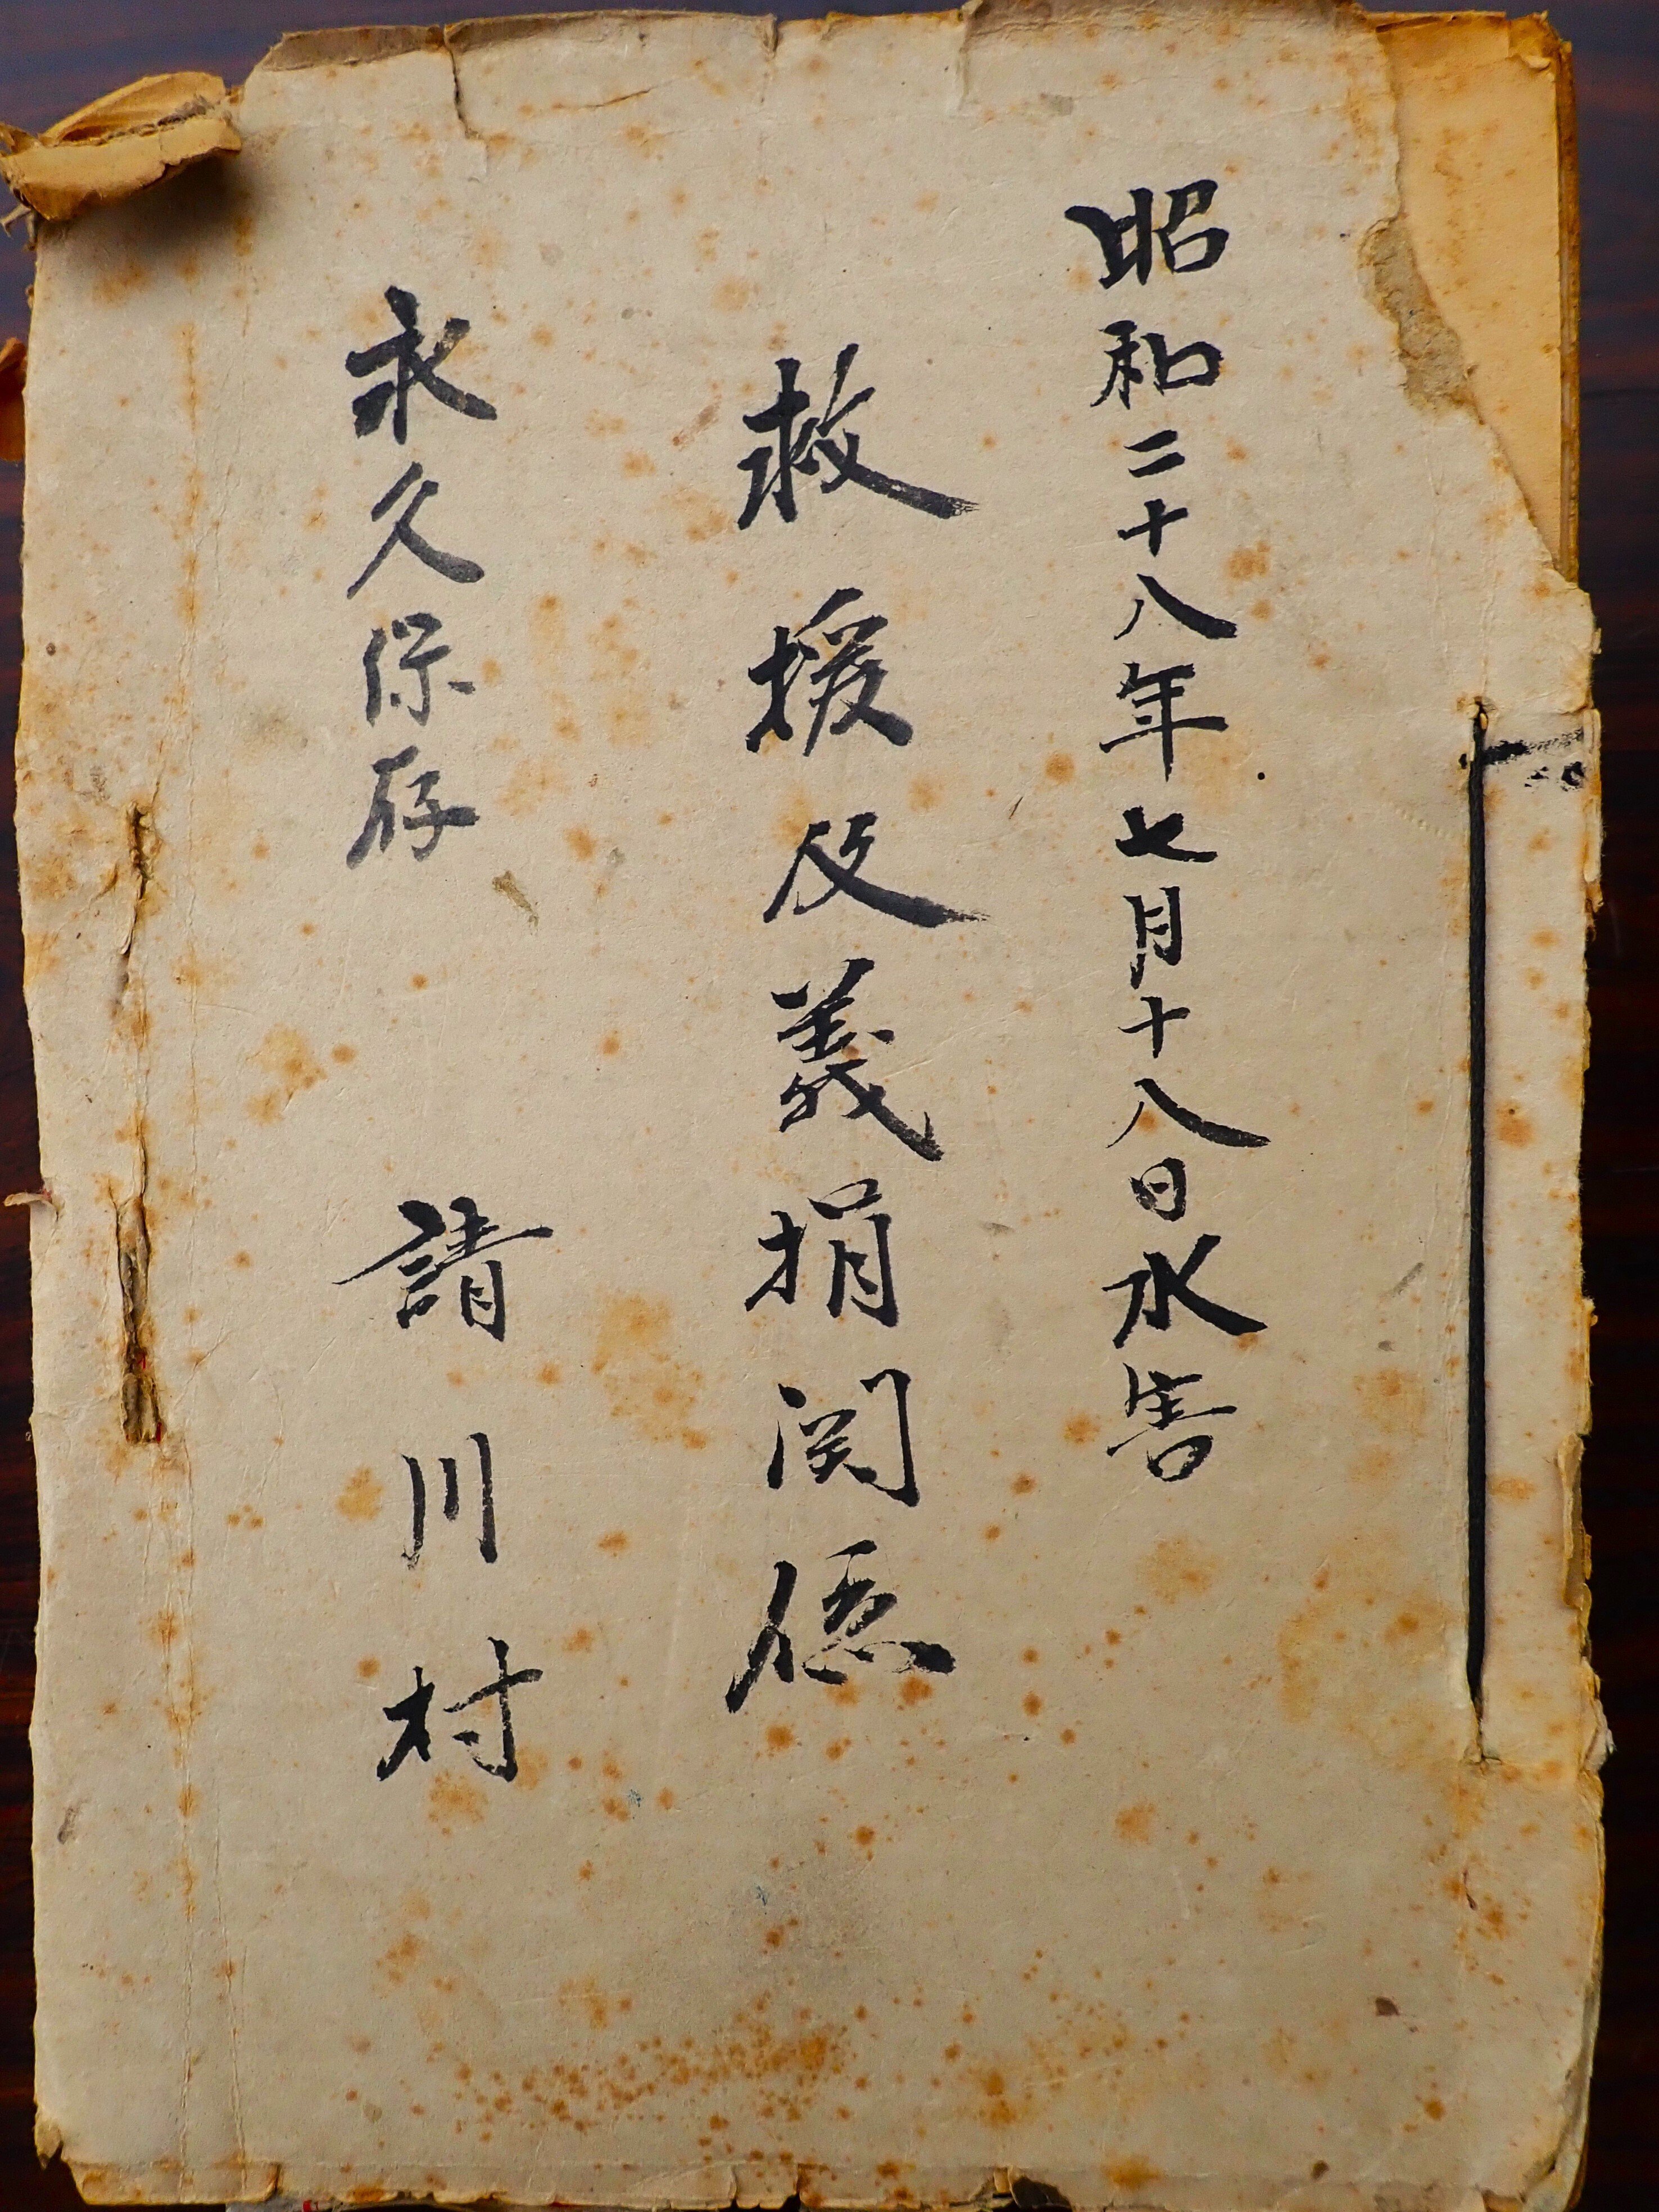 昭和二十八年七月十八日水害
救援及義捐関係
永久保存 請川村